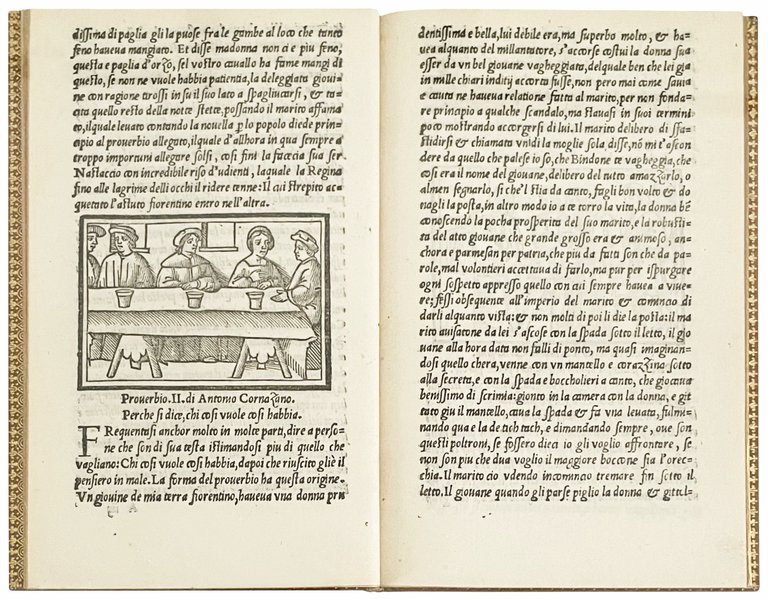 dissima di paglia gli la puose fra le gambe al loco che tanto
feno haveua mangiato. Et disse madonna non ci e piu feno,
questa e paglia d'orzo, sel vostro cauallo ha fame mangi di
questo, se non ne vuole habbia patientia, la deleggiata gioui=
ne con ragione tirossi in su il suo lato a spagliucarsi, & ta=
cata quello resto della notte stette, possando il marito affana
to, ilquale leuato contando la nouella p lo popolo diede prin=
cipio al prouerbio allegato, ilquale d'allhora in qua sempre a
troppo importuni allegare solsi, cosi fini la facecia sua ser
Nastaccio con incredibile riso d'udienti, laquale la Regina
fino alle lagrime delli occhi il ridere tenne: Il cui strepito ac=
quetato l'astuto fiorentino entro nell'altra.
Prouerbio .II. di Antonio Cornazano.
Perche si dice, chi cosi vuole cosi habbia.
FRequentasi anchor molto in molte parti, dire a perso=
ne che son di sua testa istimandosi piu di quello che
vagliano: Chi cosi vuole cosi habbia, dapoi che riuscito gliè il
pensiero in male. La forma del prouerbio ha questa origine.
Vn giouine de mia terra fiorentino, haueua vna donna pru
A
dentissima e bella, lui debile era, ma superbo molto, & ha=
uea alquanto del millantatore, s'accorse costui la donna sua
esser da vn bel giouane vagheggiata, delqual ben che lei gia
in mille chiari inditij accorta fusse, non pero mai come sauia
e cauta ne haueua relatione fatta al marito, per non fonda=
re principio a qualche scandalo, ma stauasi in suoi termini
poco mostrando accorgersi di lui. Il marito delibero di sfa=
stidirsi & chiamata vn di la moglie sola disse, nō mi t'ascon
dere da quello che palese io so, che Bindone te vagheggia, che
cosi era il nome del giouane, delibero del tutto amazzarlo, o
almen segnarlo, si che'l stia da canto, fagli bon volto & do
nagli la posta, in altro modo io a te torro la vita, la donna bē
conoscendo la pocha prosperita del suo marito, e la robusti=
ta del atto giouane che grande grosso era & animoso, an=
chora e parmesan per patria, che piu da fatti son che da pa=
role, mal volontieri accettaua di farlo, ma pur per ispurgare
ogni sospetto appresso quello con cui sempre hauea a viue=
re; fessi obsequente all'imperio del marito & comincio di
darli alquanto vista: & non molti di poi li die la posta: il ma
rito auisatone da lei s'ascose con la spada sotto il letto, il gio
uane alla hora data non falli di ponto, ma quasi imaginan=
dosi quello chera, venne con vn mantello e corazzina sotto
alla secreta, e con la spada e boccholieri a canto, che giocaua
benissimo di scrimia: gionto in la camera con la donna, e git
tato giu il mantello, caua la spada & fa vna leuata, fulmi=
nando qua e la de tich tach, e dimandando sempre, oue son
questi poltroni, se fossero dieci io gli voglio affrontare, se
non son piu che dua voglio il maggiore boccone sia l'orec=
chia. Il marito cio vdendo incomincio tremare fin sotto il
letto. Il giouane quando gli parse piglio la donna &